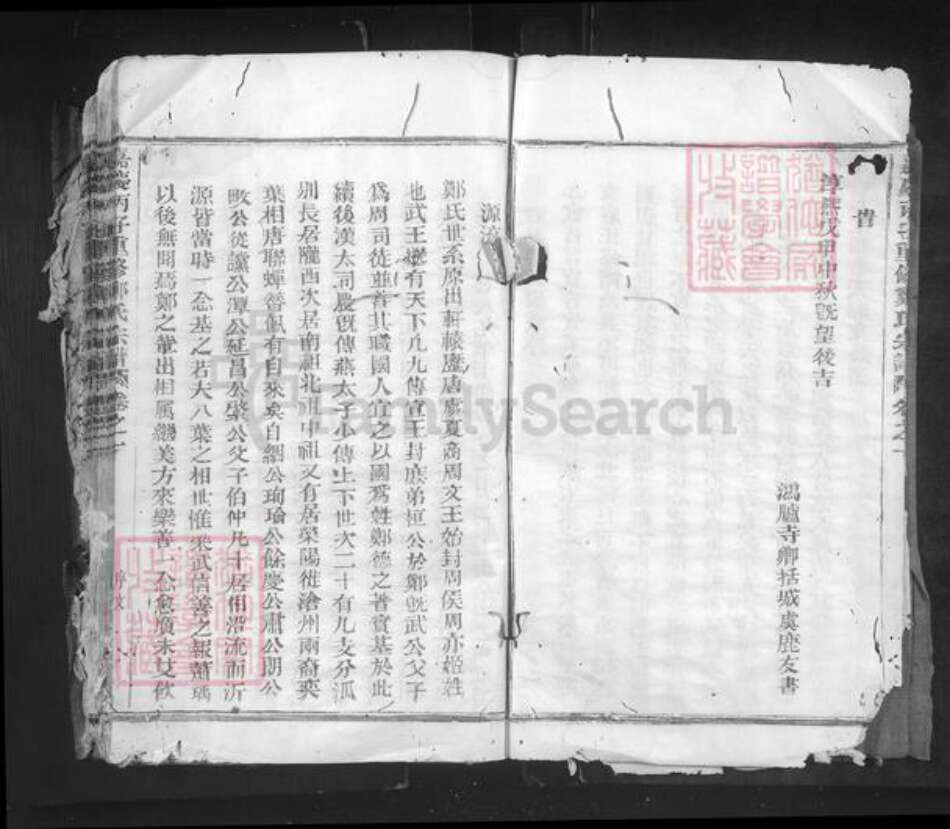 貴
淳熙戊申中秋既望後吉
鴻臚寺卿括城虞鹿友書
源流
鄭氏世系原出軒轅歷唐虞夏商周文王始封周侯周亦姬姓
也武王
有天下凡九傳宣王封庶弟桓公於鄭旣武公父子
為周司徒並善其職國人宜之以國爲姓鄭德之著實基於此
續後漢太司農旣傳燕太子少傅上下世次二十有九支分派
別長居隴西次居南祖北祖中祖又有居滎陽徙滄州兩裔奕
葉相唐聯蟬簪
有自來矣自絪公珣瑜公餘慶公肅公朗公
畋公從讜公
公延昌公綮公父子伯仲凡十居相沿流而泝
源皆當時一念基之若大八葉之相世惟梁武信善之報蕭瑀
以後無聞焉鄭之輩出相属
美方來樂善一念愈廣未艾
嘉慶丙子重修鄭氏宗譜
卷之一
序文
FamilySearch
譜學會
收藏